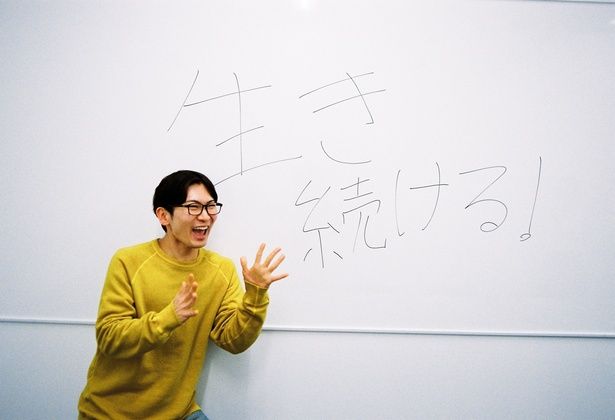 生き
続ける!